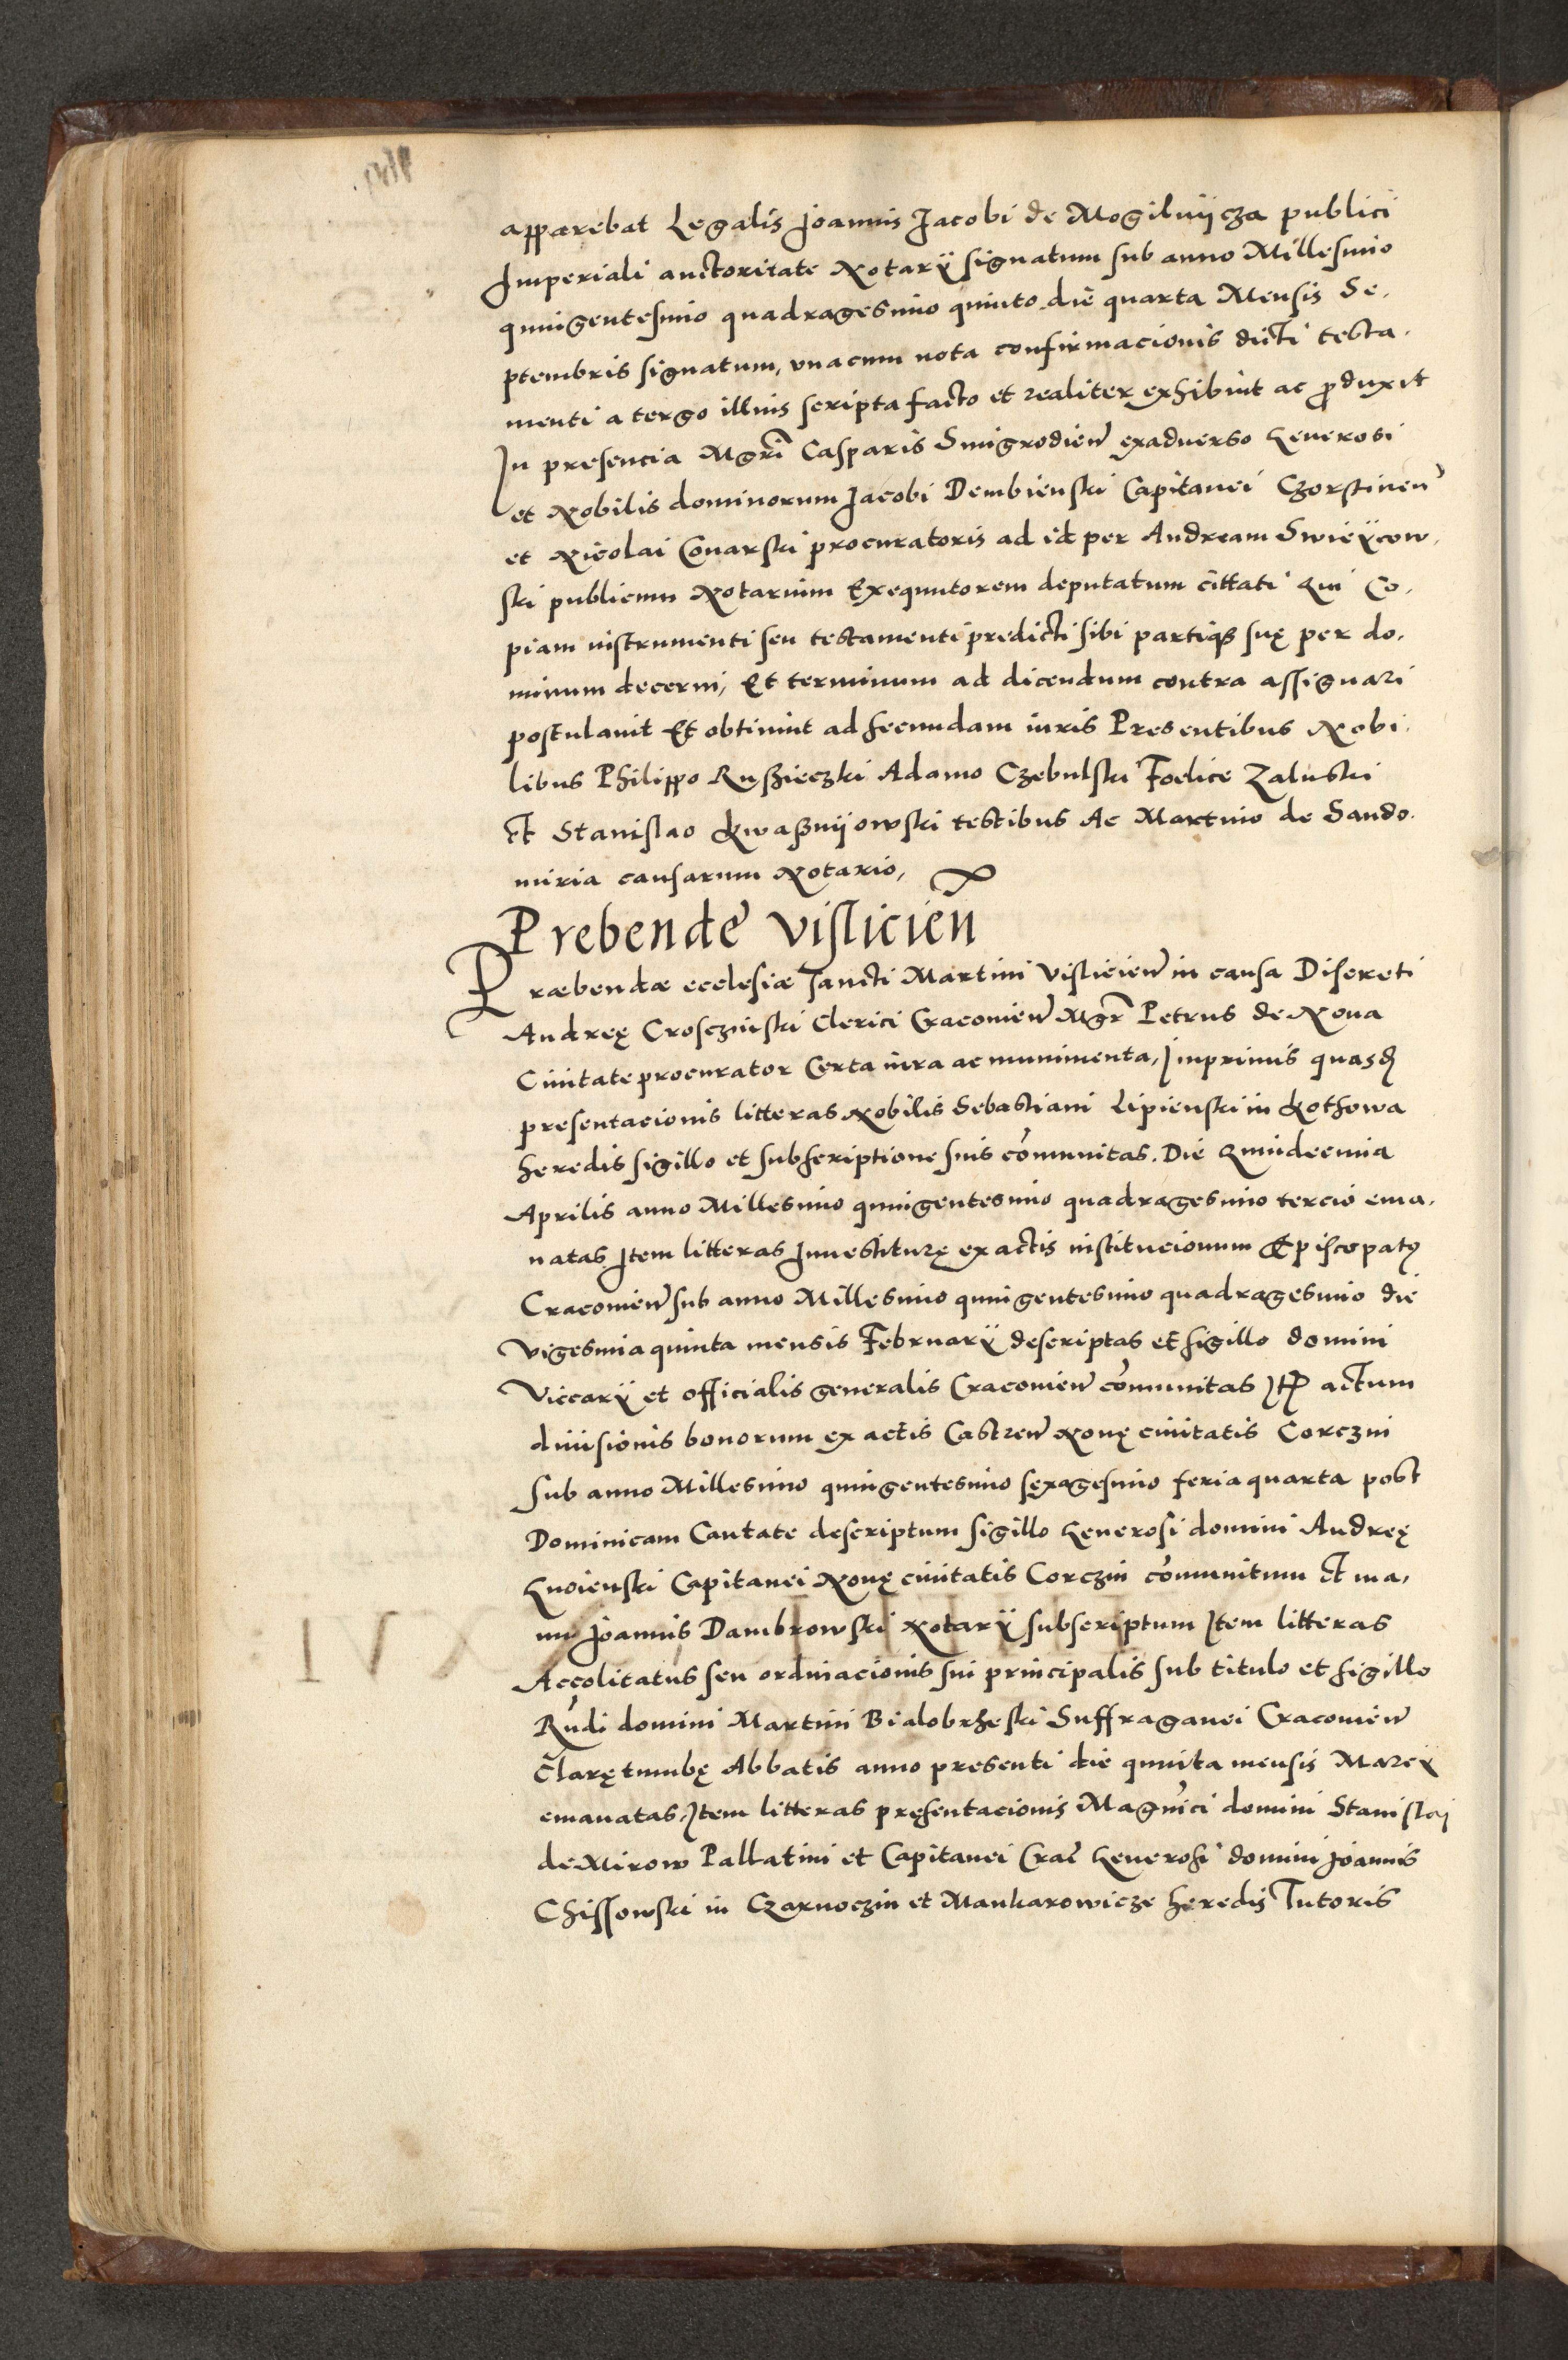 apparebat Legalis Joannis Jacobi de Mogilnijcza publici
Imperiali auctoritate Notarÿ signatum sub anno Millesimo
quingentesimo quadragesimo quinto die quarta Mensis Se,
ptembris signatum, vnacum nota confirmacionis dicti testa,
menti a tergo illius scripta facto et realiter exhibuit ac ꝓduxit
In presencia Mgrī Casparis Smigrodień exaduerso Generosi
et Nobilis dominorum Jacobi Dembienski Capitanei Czorstineń
et Nicolai Conarski procuratoris ad id per Andream Swieÿcow,
ski publicum Notarium Exequutorem deputatum cittati Qui Co,
piam instrumenti seu testamenti predicti sibi partiqȝ suę per do,
minum decerni, Et terminum ad dicendum contra assignari
postulauit Et obtinuit ad secundam iuris Presentibus Nobi,
libus Philippo Rußieczki Adamo Czebulski Foelice Zaluski
Et Stanislao Kwaßnijowski testibus Ac Martino de Sando,
miria causarum Notario,
Prebende visliciēn
Præbendæ ecclesiæ Sancti Martini Vislicień in causa Discreti
Andreę Crosczinski Clerici Cracouień Mgr̄ Petrus de Noua
Ciuitate procurator Certa iura ac munimenta, Imprimis quasd
presentacionis litteras Nobilis Sebastiani Lipienski in Kothowa
heredis sigillo et subscriptione suis cōmunitas. Die Quindecima
Aprilis anno Millesimo quingentesimo quadragesimo tercio ema,
natas Item litteras Inuestiturę ex actis institucionum Episcopatꝰ
Cracouień sub anno Millesimo quingentesimo quadragesimo die
vigesima quinta mensis Februarÿ descriptas et sigillo domini
Viccarÿ et officialis generalis Cracouień cōmunitas Itꝑ actum
diuisionis bonorum ex actis Castreń Nouę ciuitatis Corczin
sub anno Millesimo quingentesimo sexagesimo feria quarta post
Dominicam Cantate descriptum sigillo Generosi domini Andreę
Gnoienski Capitanei Nouę ciuitatis Corczin cōmunitum Et ma,
nu Joannis Dambrowski Notarÿ subscriptum Item litteras
Accolitatus seu ordinacionis sui principalis sub titulo et sigillo
Rūdi domini Martini Bialobrheski Suffraganei Cracouień
Clarętumbę Abbatis anno presenti die quinta mensis Marcÿ
emanatas, Item litteras pręsentacionis Magnīci domini Stanislaj
de Mirow Pallatini et Capitanei Crac̄ Generosi domini Joannis
Chissowski in Czarnoczin et Mankarowicze heredis Tutoris